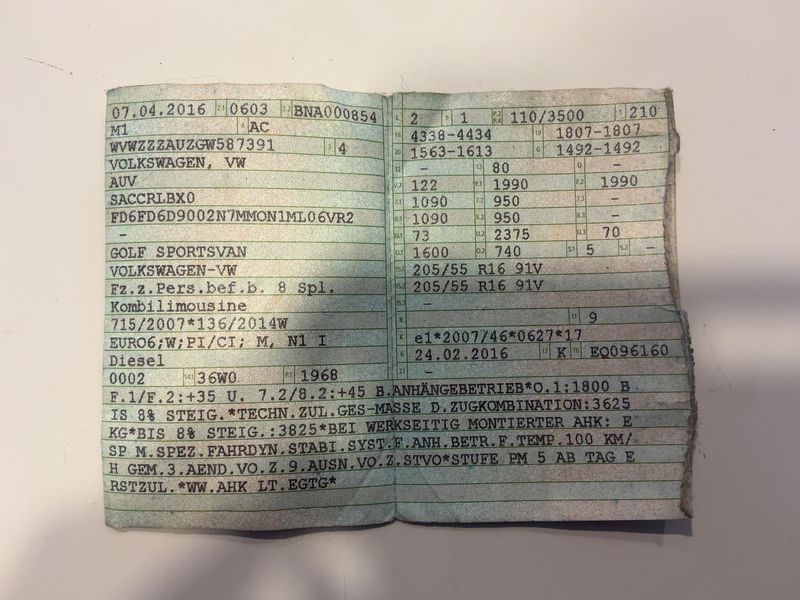 07.04.2016 2.1 0603 2.2 BNA000854
M1 4 AC
WVWZZZAUZGW587391 3 4
VOLKSWAGEN, VW
AUV
SACCRLBX0
FD6FD6D9002N7MMON1ML06VR2
-
GOLF SPORTSVAN
VOLKSWAGEN-VW
Fz.z.Pers.bef.b. 8 Spl.
Kombilimousine
715/2007*136/2014W
EURO6;W;PI/CI; M, N1 I
Diesel
0002 14.1 36W0 P.1 1968
L 2 9 1 P.2 P.4 110/3500 T 210
18 4338-4434 19 1807-1807
20 1563-1613 G 1492-1492
12 - 13 80 Q -
V.7 122 F.1 1990 F.2 1990
7.1 1090 7.2 950 7.3 -
8.1 1090 8.2 950 8.3 -
U.1 73 U.2 2375 U.3 70
O.1 1600 O.2 740 S.1 5 S.2 -
15.1 205/55 R16 91V
15.2 205/55 R16 91V
15.3 -
R 11 9
K e1*2007/46*0627*17
6 24.02.2016 17 K 16 EQ096160
21 -
F.1/F.2:+35 U. 7.2/8.2:+45 B.ANHÄNGEBETRIEB*O.1:1800 B
IS 8% STEIG.*TECHN.ZUL.GES-MASSE D.ZUGKOMBINATION:3625
KG*BIS 8% STEIG.:3825*BEI WERKSEITIG MONTIERTER AHK: E
SP M.SPEZ.FAHRDYN.STABI.SYST.F.ANH.BETR.F.TEMP.100 KM/
H GEM.3.AEND.VO.Z.9.AUSN.VO.Z.STVO*STUFE PM 5 AB TAG E
RSTZUL.*WW.AHK LT.EGTG*